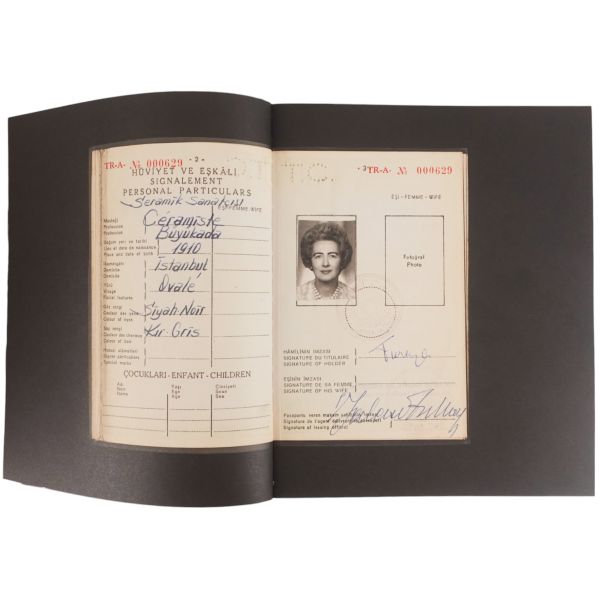 TR-A- № 000629 - 2 -
HÜVİYET VE EŞKÂLİ
SIGNALEMENT
PERSONAL PARTICULARS
Seramik Sanatçısı
EŞİ-FEMME-WIFE
Mesleği
Profession
Profession
Céramiste
Doğum yeri ve tarihi
Lieu et date de naissance
Place and date of birth
Büyükada
1910
İkametgâhı
Domicile
Domicile
İstanbul
Yüzü
Visage
Facial features
Ovale
Göz rengi
Couleur des yeux
Colour of eyes
Siyah-Noir
Saç rengi
Couleur des cheveux
Colour of hair
Kır-Gris
Hususî alâmetleri
Signes particuliers
Special marks
ÇOCUKLARI-ENFANT-CHILDREN
Adı Yaşı Cinsiyeti
Nom Age Sexe
Name Age Sex
T.C.
- 3 - TR-A- № 000629
EŞİ-FEMME-WIFE
Fotoğraf
Photo
HÂMİLİNİN İMZASI
SIGNATURE DU TITULAIRE
SIGNATURE OF HOLDER
Füreya
EŞİNİN İMZASI
SIGNATURE DE SA FEMME
SIGNATURE OF HIS WIFE
Pasaportu veren makam
Signature de l'agent
Signature of issuing official